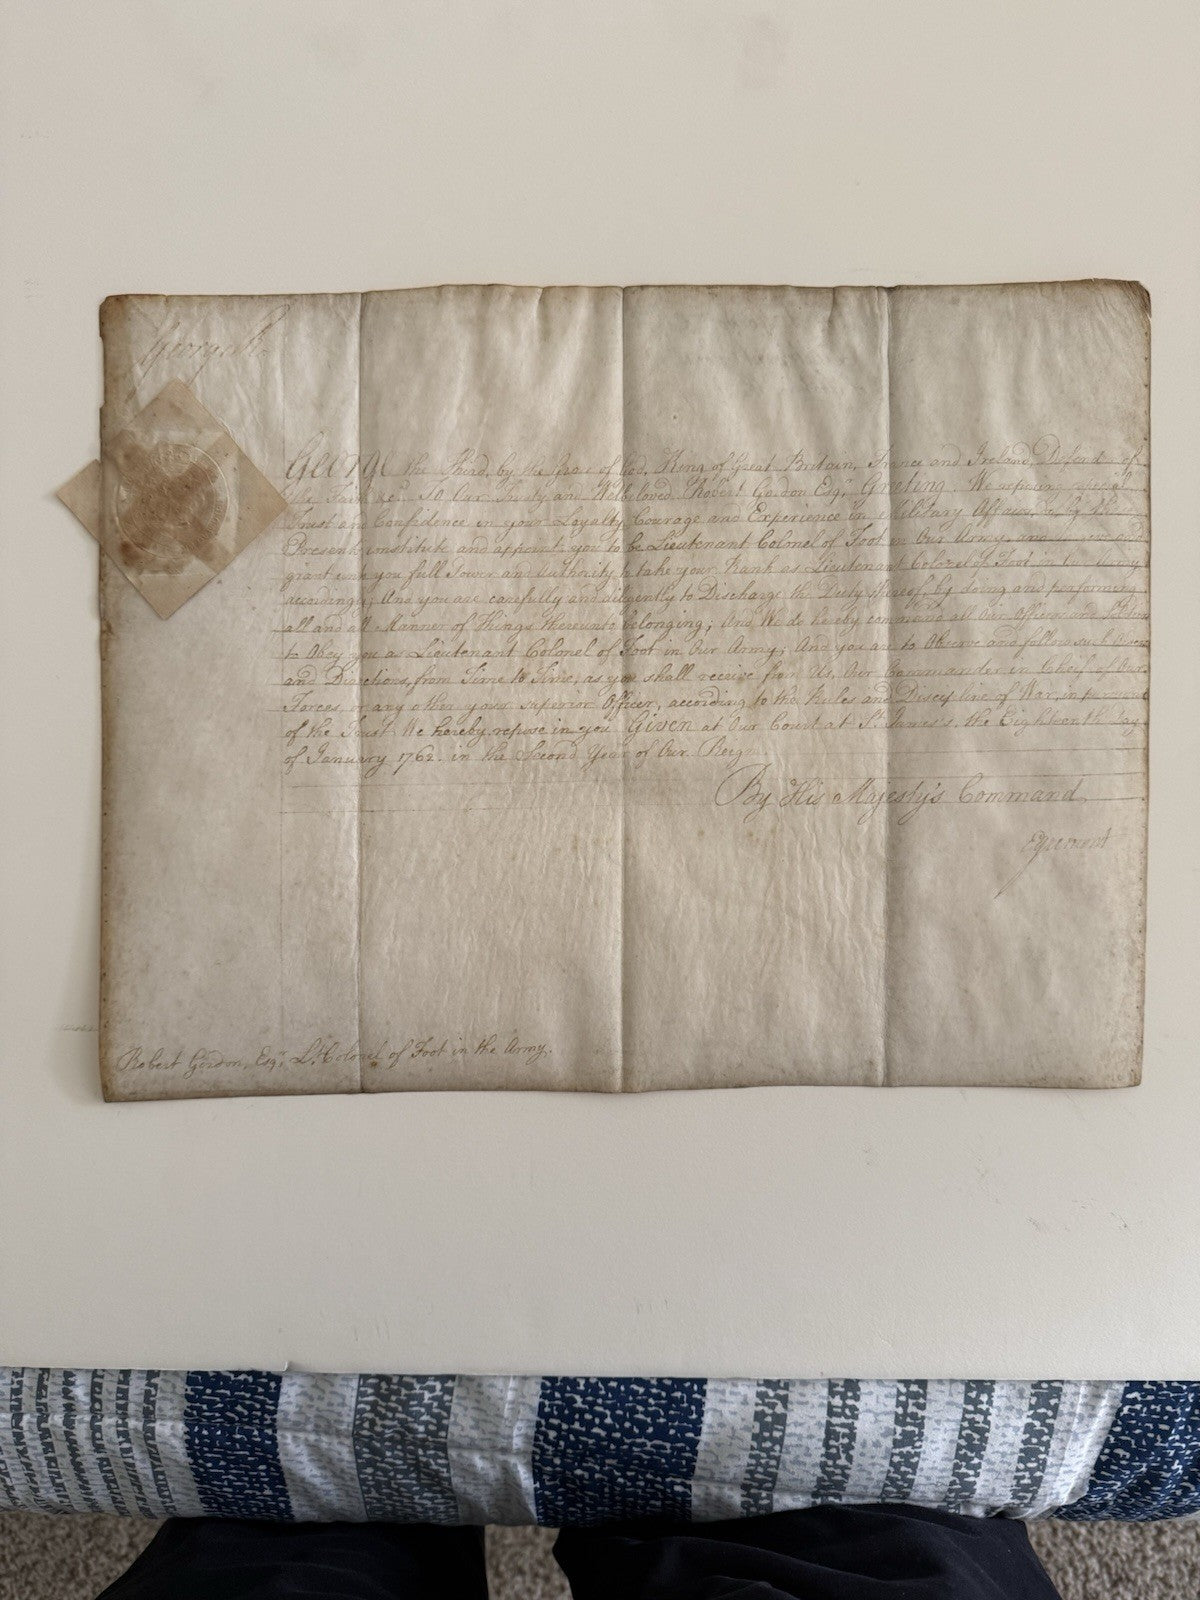 George R.
George the Third, by the Grace of God, King of Great Britain, France and Ireland, Defender of
the Faith, &c. To Our Trusty and Welbeloved Robert Gordon Esqr. Greeting. We reposing especial
Trust and Confidence in your Loyalty, Courage and Experience in Military Affairs, do by these
Presents constitute and appoint you to be Lieutenant Colonel of Foot in Our Army, and give and
grant unto you full Power and Authority to take your Rank as Lieutenant Colonel of Foot in Our Army
accordingly; And you are carefully and diligently to Discharge the Duty thereof, by doing and performing
all and all Manner of Things thereunto belonging; And We do hereby command all Our Officers and Soldiers
to Obey you as Lieutenant Colonel of Foot in Our Army; And you are to Observe and follow such Orders
and Directions, from Time to Time, as you shall receive from Us, Our Commander in Chief of Our
Forces, or any other your superior Officer, according to the Rules and Discipline of War, in pursuance
of the Trust We hereby repose in you. Given at Our Court at St. James's, the Eighteenth Day
of January 1762. in the Second Year of Our Reign
By His Majesty's Command
Egremont
Robert Gordon, Esqr. Lt. Colonel of Foot in the Army.